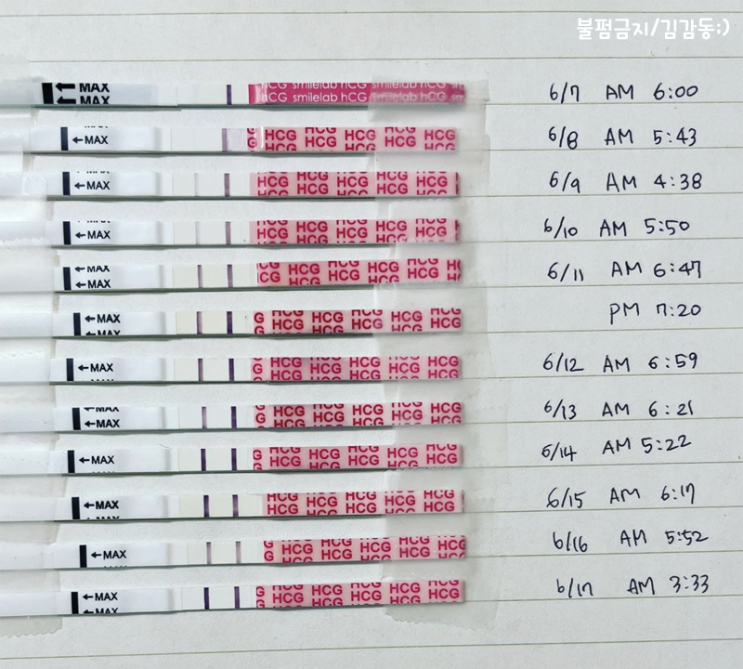 불펌금지/김감동:)
←MAX
←MAX
hCG smilelab hCG smilelab hCG sm
hCG smilelab hCG smilelab hCG sm
6/7 AM 6:00
←MAX
HCG HCG HCG HCG HCG
6/8 AM 5:43
←MAX
HCG HCG HCG HCG HCG
6/9 AM 4:38
←MAX
HCG HCG HCG HCG HCG
6/10 AM 5:50
←MAX
←MAX
HCG HCG HCG HCG
6/11 AM 6:47
←MAX
G HCG HCG HCG HCG
PM 7:20
←MAX
HCG HCG HCG HCG
6/12 AM 6:59
←MAX
G HCG HCG HCG HCG
6/13 AM 6:21
←MAX
HCG HCG HCG HCG
6/14 AM 5:22
←MAX
HCG HCG HCG HCG HCG
6/15 AM 6:17
←MAX
G HCG HCG HCG HCG
6/16 AM 5:52
←MAX
HCG HCG HCG HCG
6/17 AM 3:33